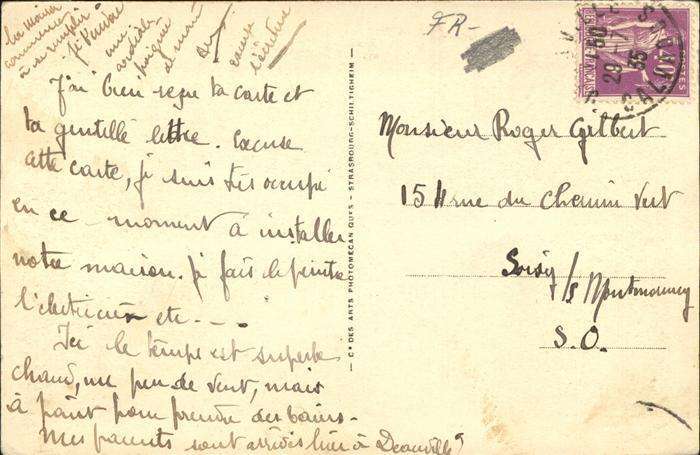 J'ai bien reçu ta carte et
ta gentille lettre. Excuse
cette carte, je suis très occupé
en ce moment à installer
notre maison. Je fais le peintre
l'électricien etc - - -
Ici le temps est superbe
chaud, un peu de vent, mais
à point pour prendre des bains -
Mes parents sont arrivés hier à Deauville
la maison
commence
à se remplir
une
poignée
de main
écriture
FR-
Monsieur Roger Gilbert
15 rue du Chemin Vert
Soisy / s Montmorency
S.O.
Cie DES ARTS PHOTOMÉCANIQUES - STRASBOURG-SCHILTIGHEIM -
29 -7
35
CALV